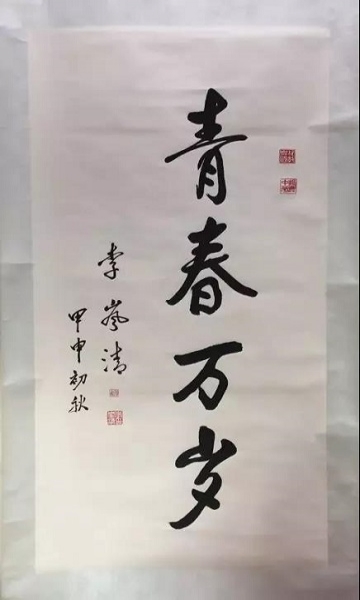 青春万岁
李岚清
甲申初秋